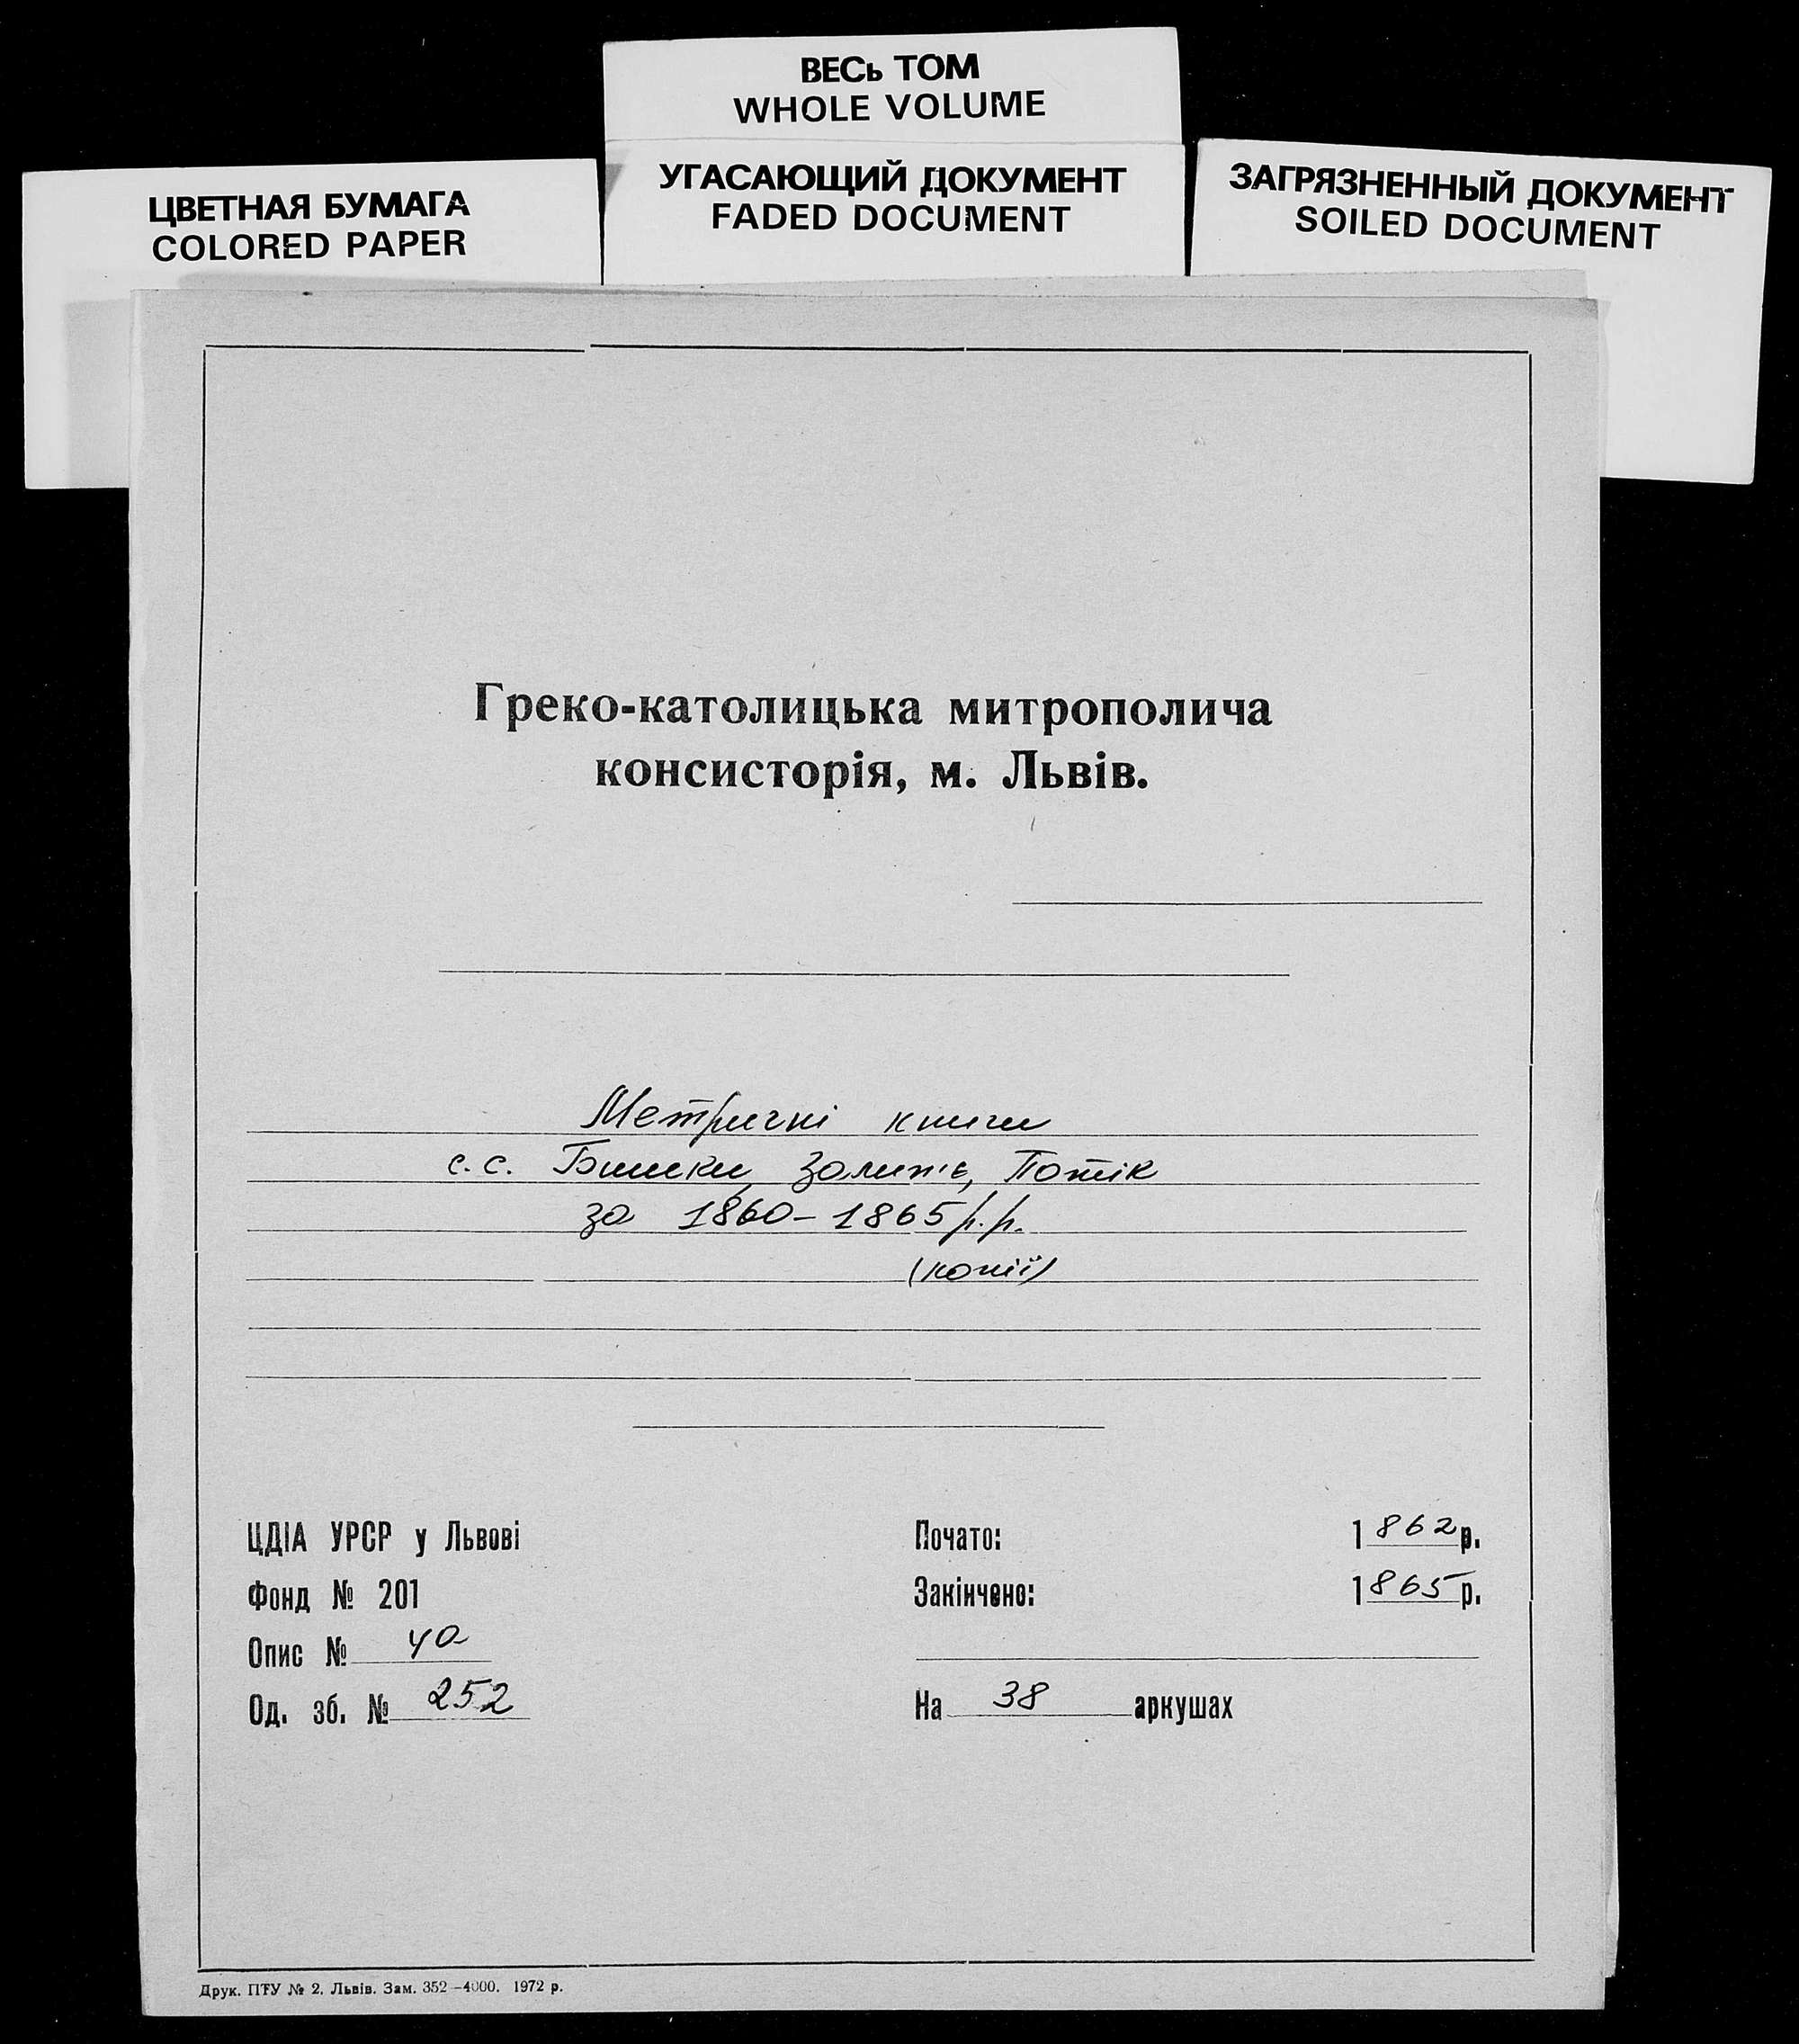 ВЕСЬ ТОМ
WHOLE VOLUME
ЦВЕТНАЯ БУМАГА
COLORED PAPER
УГАСАЮЩИЙ ДОКУМЕНТ
FADED DOCUMENT
ЗАГРЯЗНЕННЫЙ ДОКУМЕНТ
SOILED DOCUMENT
Греко-католицька митрополича
консисторія, м. Львів.
Метричні книги
с.с. Бишки, Потік
за 1860-1865 р.р.
(копії)
ЦДІА УРСР у Львові
Фонд № 201
Опис № 40
Од. зб. № 252
Почато: 1862 р.
Закінчено: 1865 р.
На 38 аркушах
Друк. ПТУ № 2. Львів. Зам. 352-4000. 1972 р.